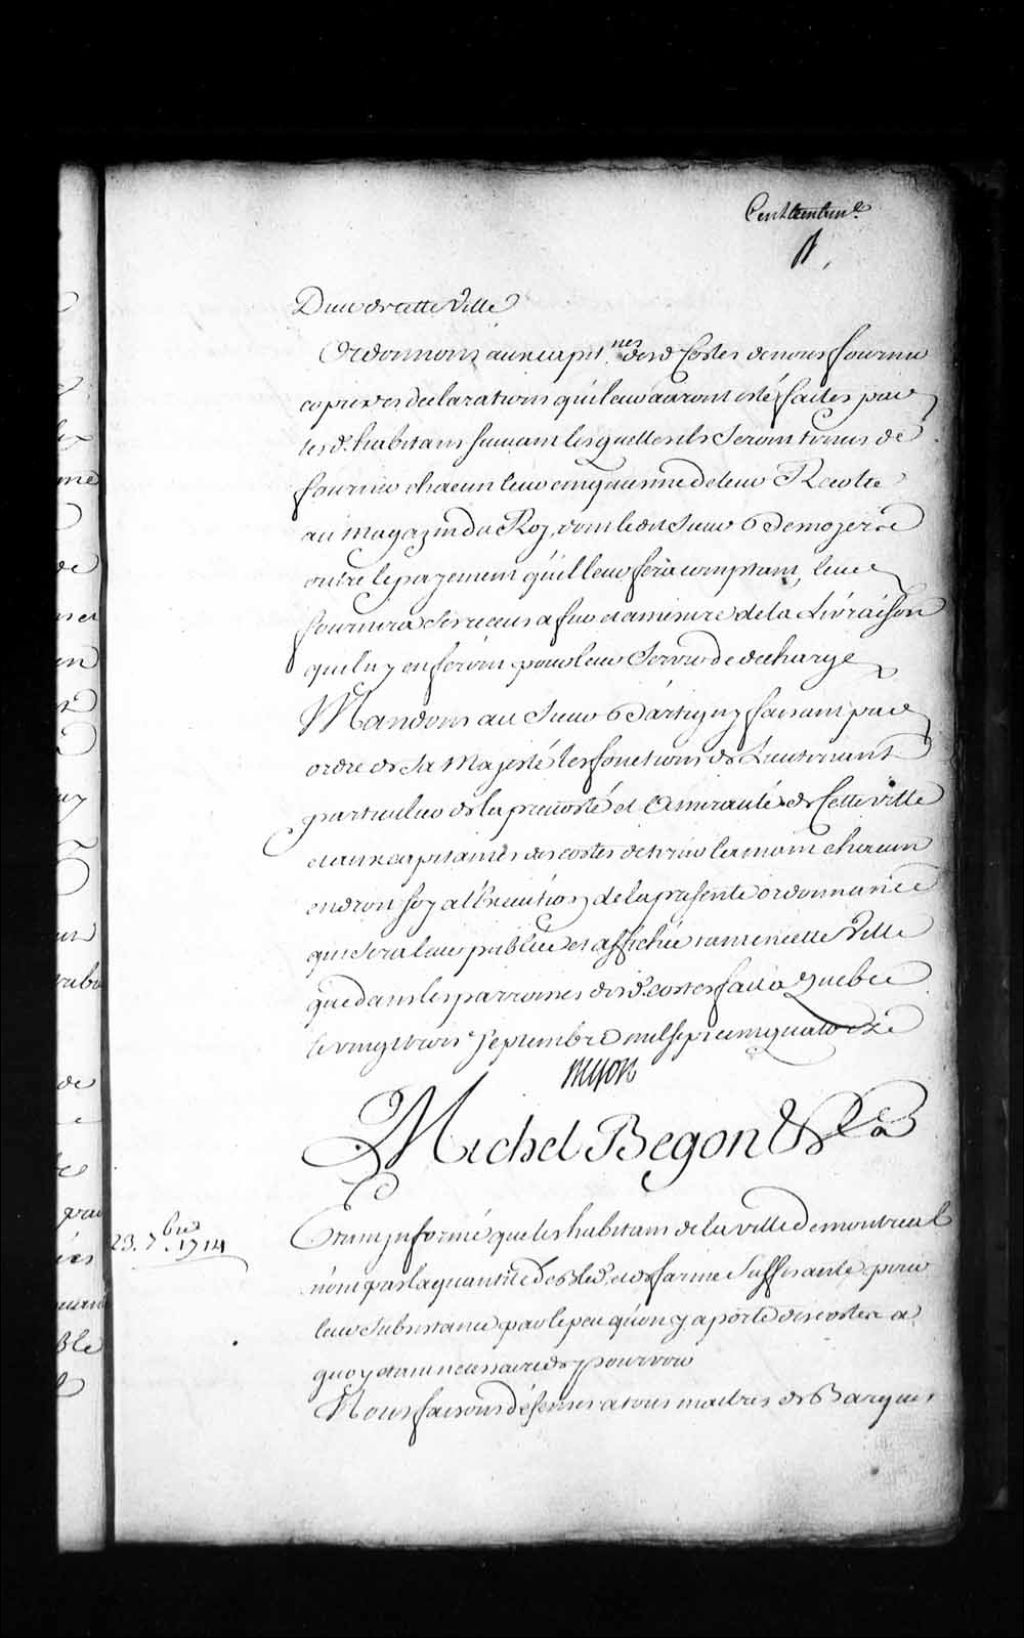 Cent trente un.e
Ducs de cette Ville
Ordonnons aux capit.nes desd Costes de nous fournir
copie des declarations qui leur auront esté faites par
lesd. habitans suivant lesquelles ils seront tenus de
fournir chacun leur cinquiesme de leur Recolte
au magazin du Roy, dont led Sieur
outre le payement qu'il leur fera comptant, leur
fournira ses receus a fur et a mesure de la Livraison
quil y en feront pour leur Servir de decharge
Mandons au Sieur Dartigny faisant par
ordre de Sa Majesté les fonctions de Lieutenant
particulier de la prevosté et Amirauté de Cette ville
et aux capitaines des costes de tenir la main chacun
endroit soy a l'Execution de la presente ordonnance
qui sera leue publiée et affichée tant en cette Ville
que dans les parroisses desd. costes fait a Quebec
le vingt trois.e septembre mil sept cent quatorze
Begon
Michel Begon &.ca
23. 7.bre 1714
Etant informé que les habitans de la ville de montreal
n'ont pas la quantité de Bled. et de farine Suffisante pour
leur Subsistance par le peu qu'on y a porté des costes a
quoy etant necessaire de pourvoir
Nous faisons défenses a tous maitres de Barques